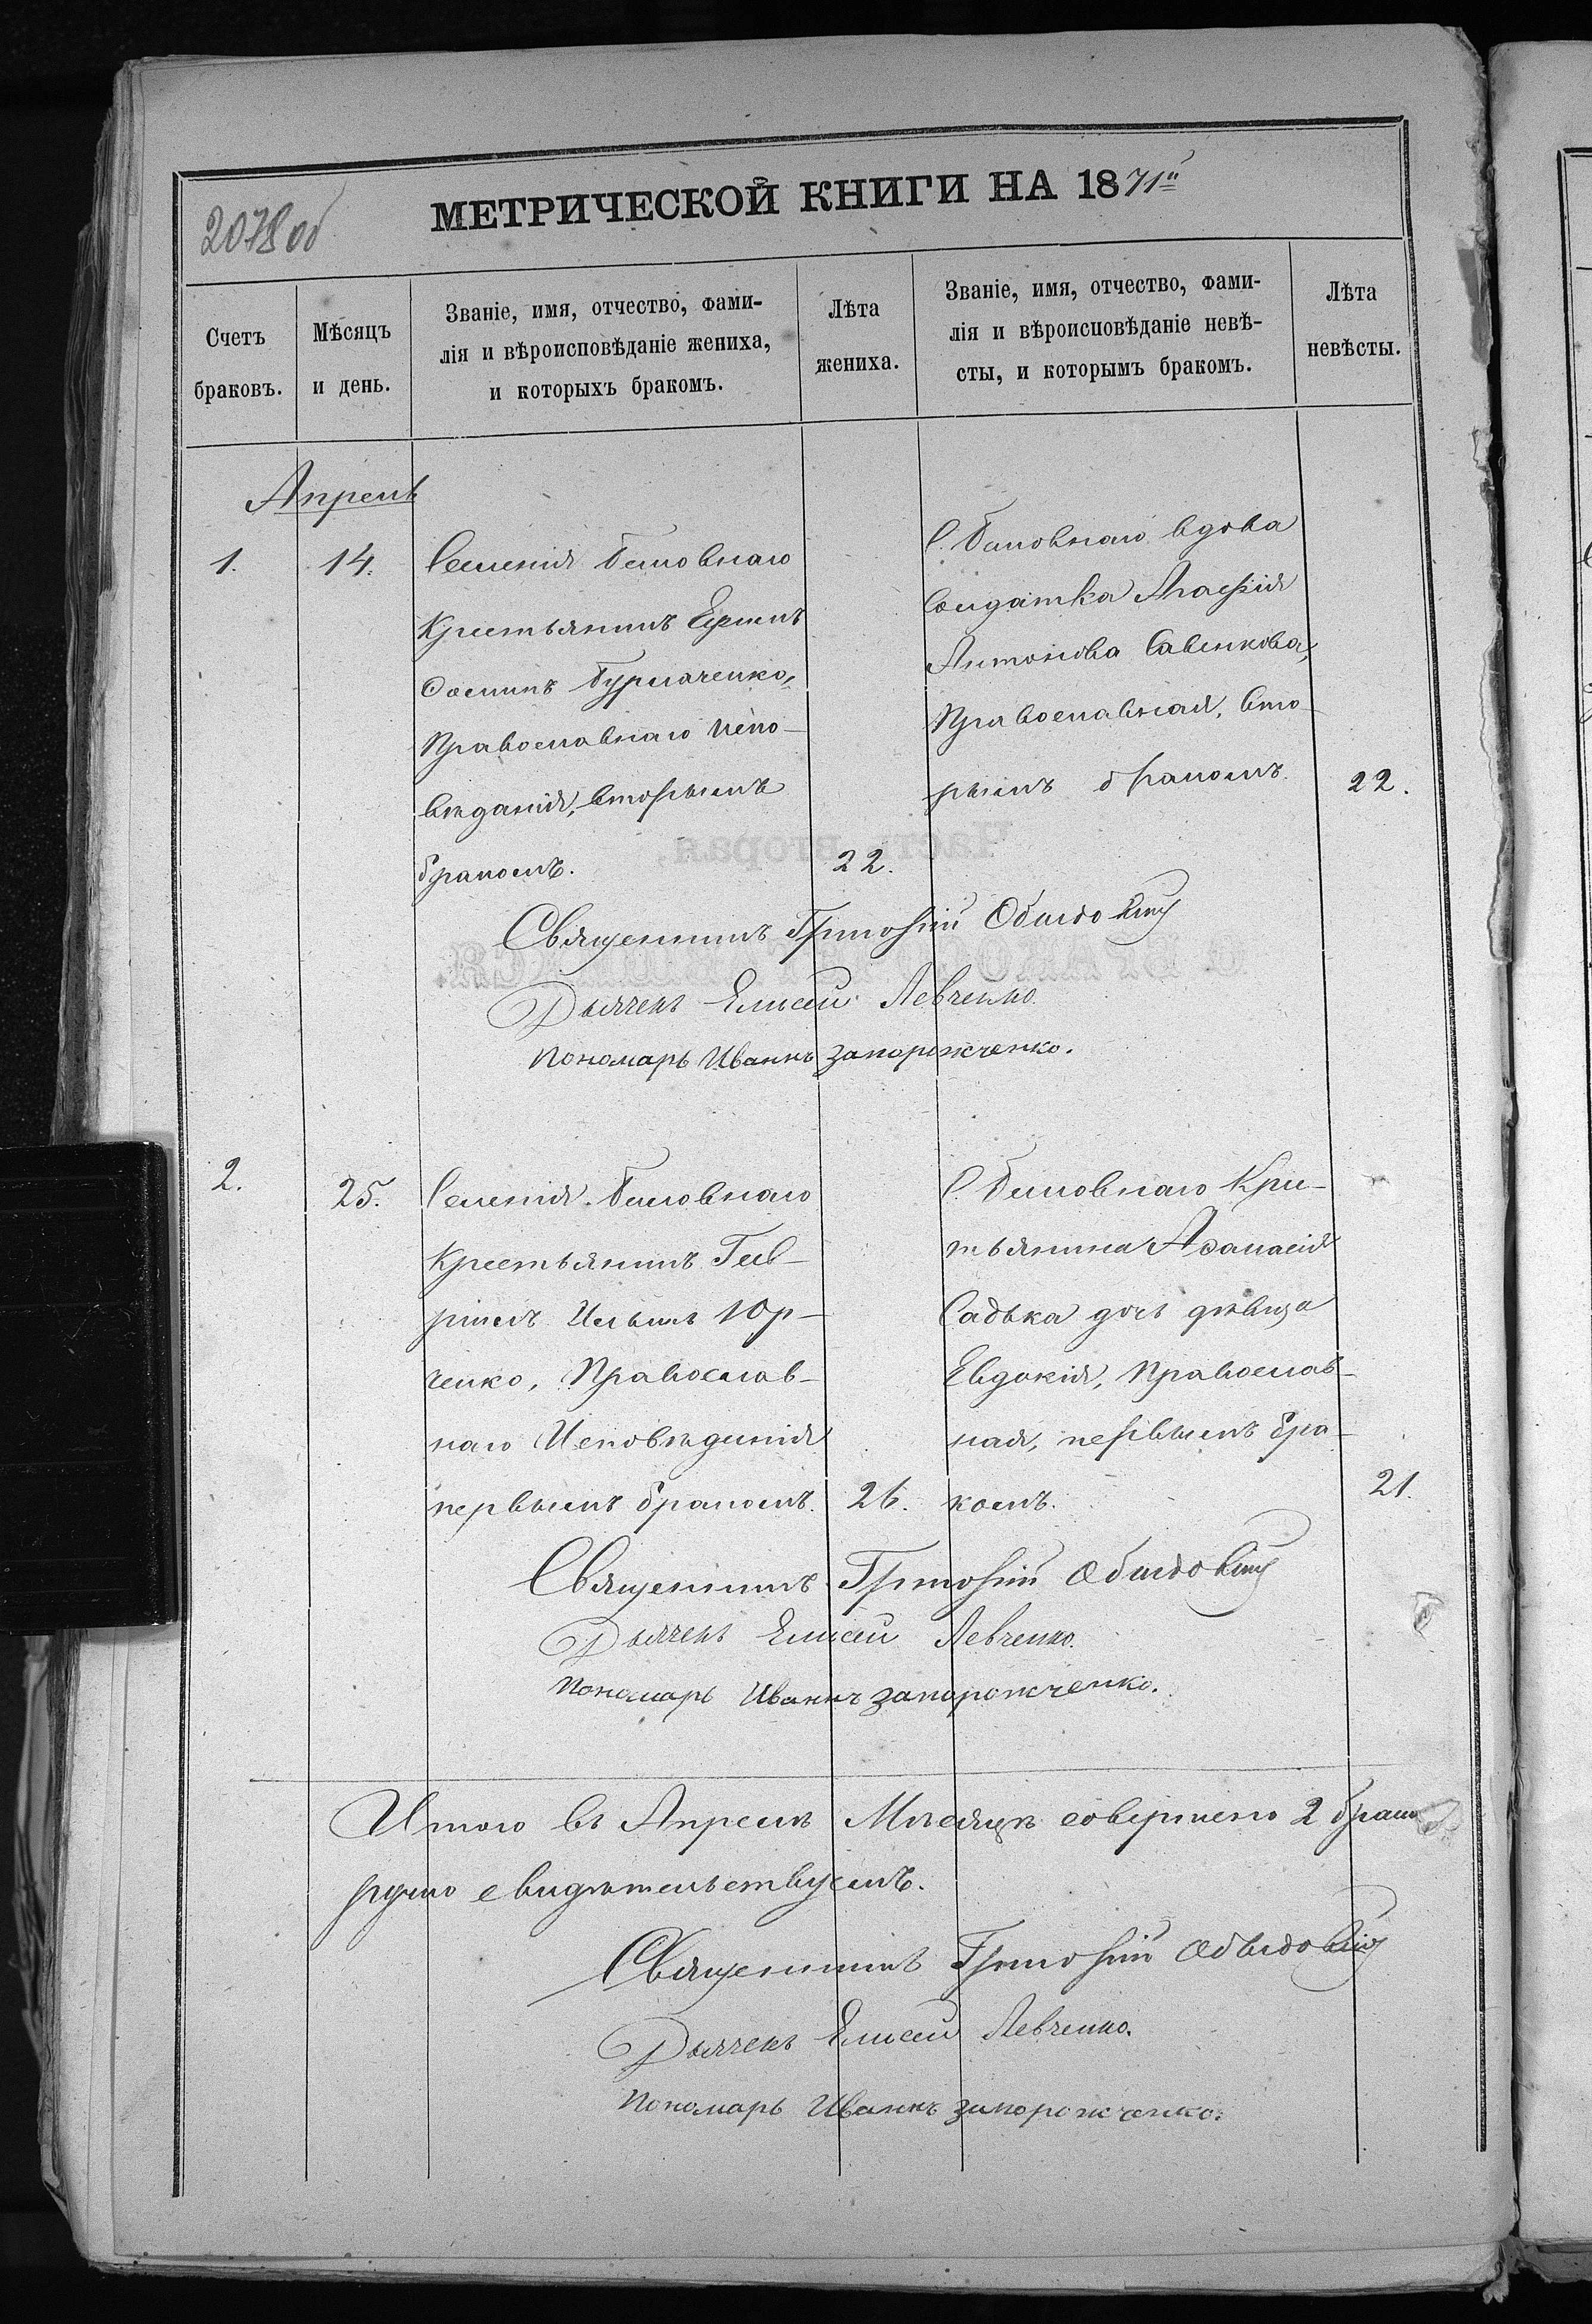 2078 об
МЕТРИЧЕСКОЙ КНИГИ НА 1871й
Счетъ
браковъ.
Мѣсяцъ
и день.
Званіе, имя, отчество, фами-
лія и вѣроисповѣданіе жениха,
и которыхъ бракомъ.
Лѣта
жениха.
Званіе, имя, отчество, фами-
лія и вѣроисповѣданіе невѣ-
сты, и которымъ бракомъ.
Лѣта
невѣсты.
Апрель
1.
14.
Селенія
Крестьянинъ
Ѳоминъ Бурлаченко,
Православнаго Испо-
вѣданія, вторымъ
бракомъ.
22.
С. вдова
Солдатка Агафія
Антонова Савенкова,
Православная, вто-
рымъ бракомъ
22.
Священникъ Григорій
Дьячекъ Елисей Левченко.
Пономарь Иваннъ Запорожченко.
2.
25.
Селенія
Крестьянинъ Гав-
ріилъ Ильинъ Юр-
ченко, Православ-
наго Исповѣданія
первымъ бракомъ.
26.
С. Кре-
тьянина Аѳанасія
Садька дочь дѣвица
Евдокія, Православ-
ная, первымъ бра-
комъ.
21.
Священникъ Григорій
Дьячекъ Елисей Левченко.
Пономарь Иваннъ Запорожченко.
Итого въ Апрелѣ Мѣсяцѣ совершено 2 брака
свидѣтельствуемъ.
Священникъ Григорій
Дьячекъ Елисей Левченко.
Пономарь Иваннъ Запорожченко.